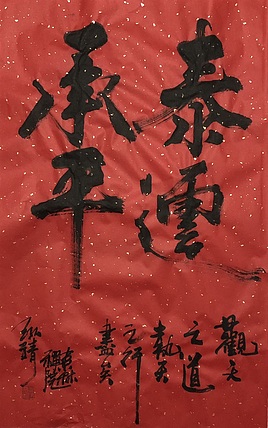 泰運
承平
觀天
之道
執天
之行
盡矣